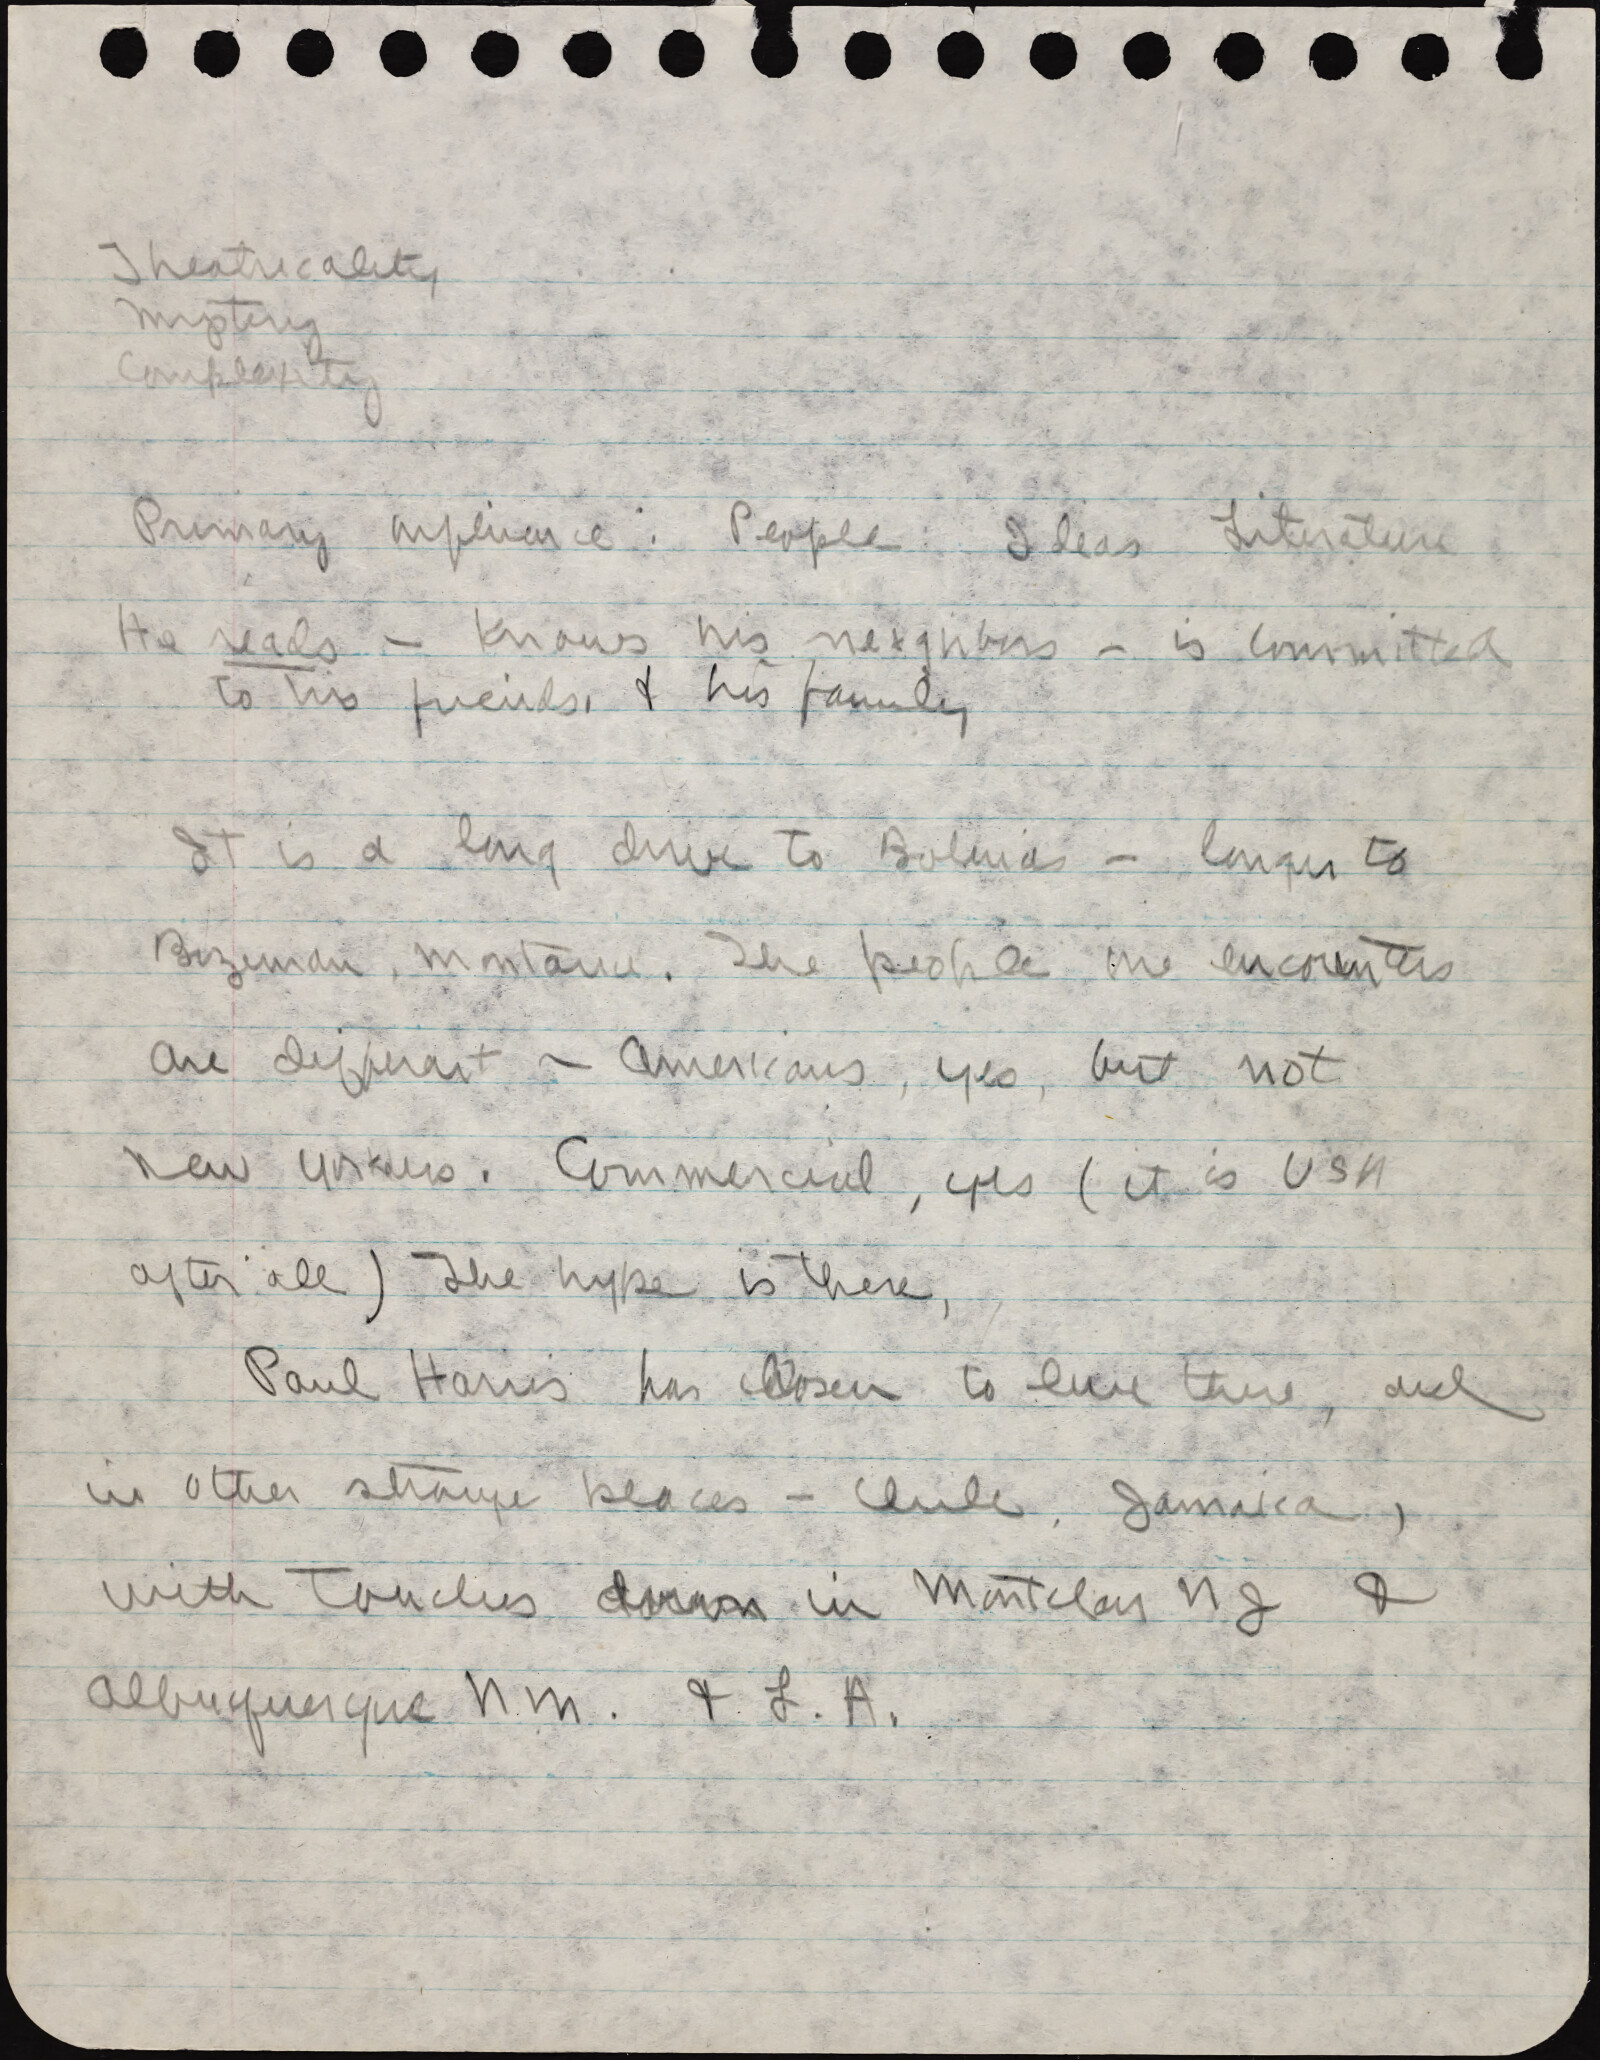 Theatricality
Mystery
Complexity
Primary influence : People Ideas Literature
He reads – knows his neighbors – is committed
to his friends, & his family
It is a long drive to Bolinas – longer to
Bozeman, Montana. The people one encounters
are different – Americans, yes, but not
New Yorkers. Commercial, yes ( it is USA
after all ) The hype is there,
Paul Harris has chosen to live there, and
in other strange places – Chile, Jamaica,
with touches down in Montclair NJ &
Albuquerque N.M. & L.A.